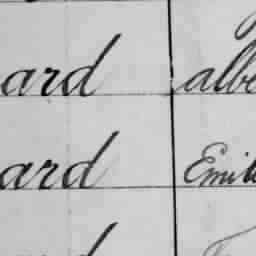 ard albe
ard Emil